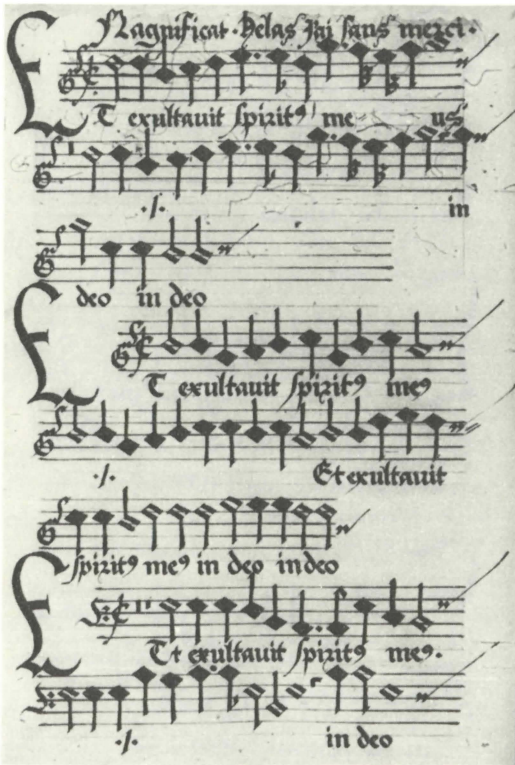 Magnificat. Helas j'ai sans merci.
ET exultavit spiritꝰ me us
./. in
deo in deo
ET exultavit spiritꝰ meꝰ
./. Et exultavit
spiritꝰ meꝰ in deo in deo
ET exultavit spiritꝰ meꝰ.
./. in deo